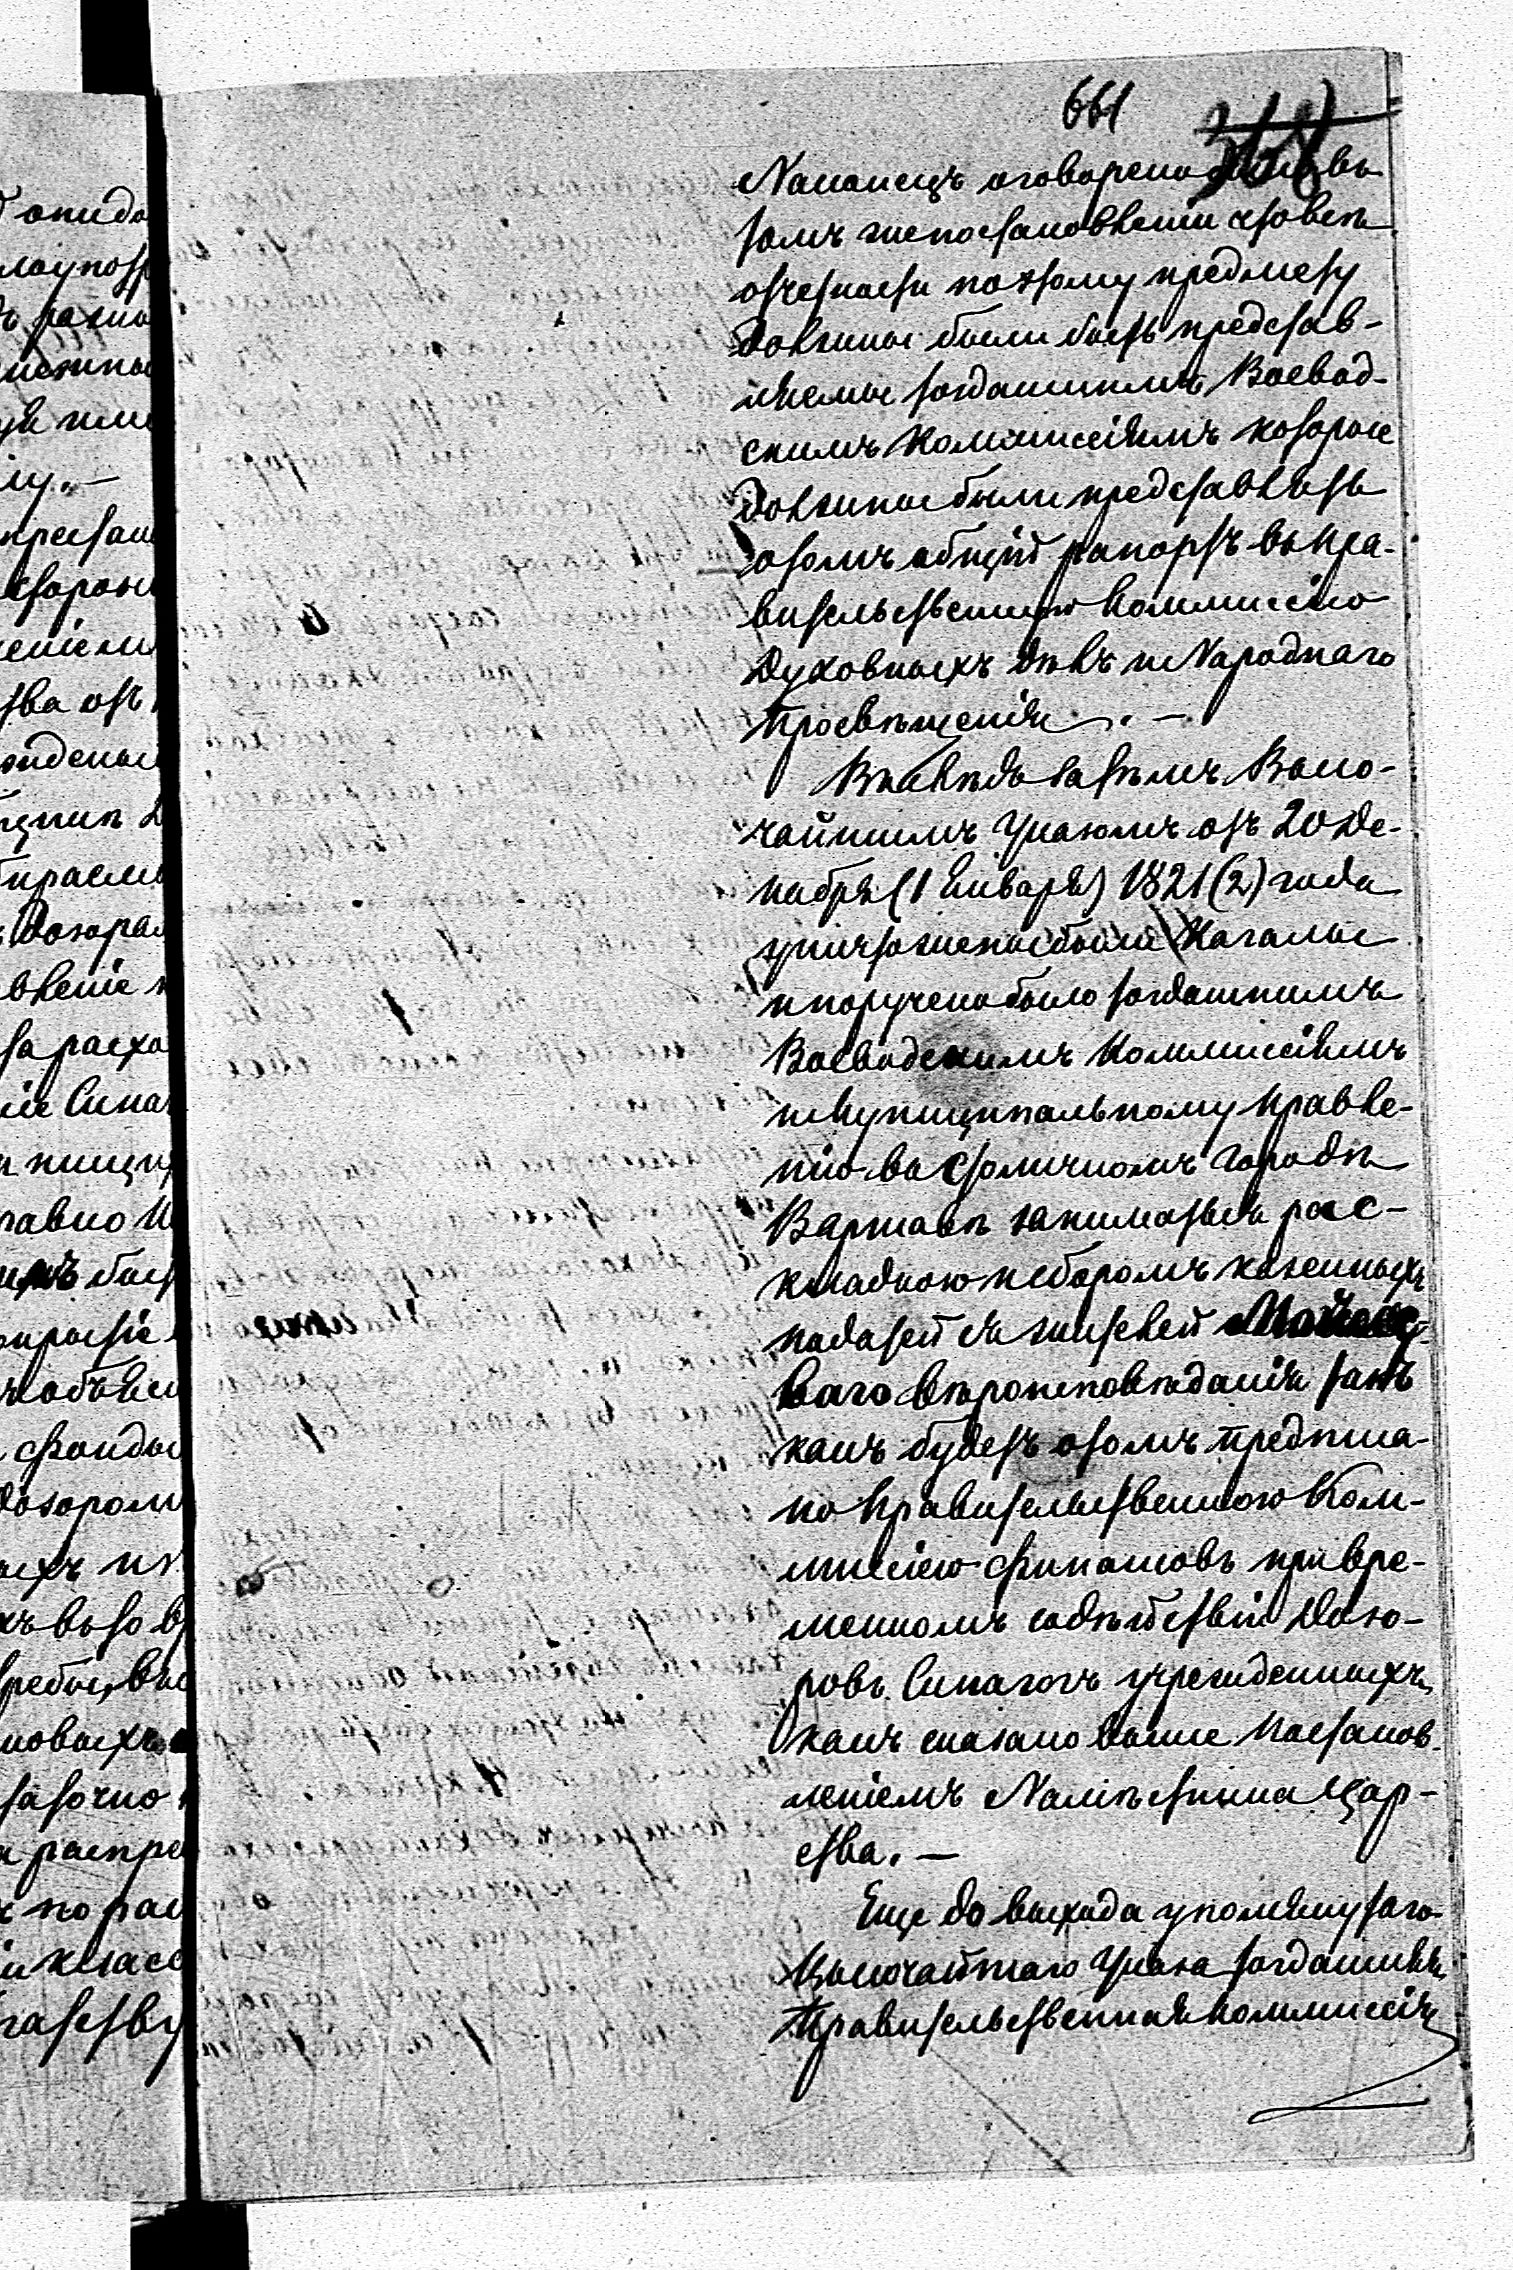 661
368
Наконецъ оговорено было въ
томъ же постановленіи чтобы
отчетности по этому предмету
должны были быть представ-
ляемы тогдашнимъ Воевод-
скимъ Коммиссіямъ которые
должны были представлять
о томъ общій рапортъ въ Пра-
вительственную Коммиссію
Духовныхъ дѣлъ и Народнаго
Просвѣщенія. —
Вслѣдъ затѣмъ Высо-
чайшимъ Указомъ отъ 20 Де-
кабря (1 Января) 1821 (2) года
уничтожены были Кагалы
и поручено было тогдашнимъ
Воеводскимъ Коммиссіямъ
и Муниципальному Правле-
нію въ столичномъ городѣ
Варшавѣ заниматься рас-
кладкою и сборомъ казенныхъ
податей съ жителей Моисее-
ваго вѣроисповѣданія такъ
какъ будетъ о томъ предписа-
но Правительственною Ком-
мисіею Финансовъ при вре-
менномъ содѣйствіи Дозо-
ровъ Синагогъ учрежденныхъ,
какъ сказано выше Постанов-
леніемъ Намѣстника Цар-
ства. —
Еще до выхода упомянутаго
Высочайшаго Указа тогдашняя
Правительственная Коммиссія
опидо
разно
ій. —
сторон
ства отъ
вленіе
та расхо
іе Синаг
равно И
объяв
фонды
дозором
ныхъ и
новыхъ
распре
по рас
класс